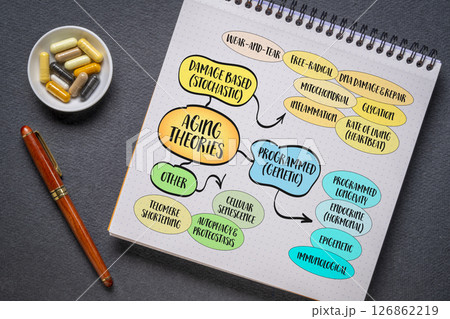 WEAR-AND-TEAR
FREE-RADICAL
DNA DAMAGE & REPAIR
MITOCHONDRIAL
GLYCATION
INFLAMMATION
RATE OF LIVING
(HEARTBEAT)
DAMAGE BASED
(STOCHASTIC)
AGING
THEORIES
PROGRAMMED
(GENETIC)
PROGRAMMED
LONGEVITY
ENDOCRINE
(HORMONAL)
EPIGENETIC
IMMUNOLOGICAL
OTHER
CELLULAR
SENESCENCE
TELOMERE
SHORTENING
AUTOPHAGY &
PROTEOSTASIS
126862219